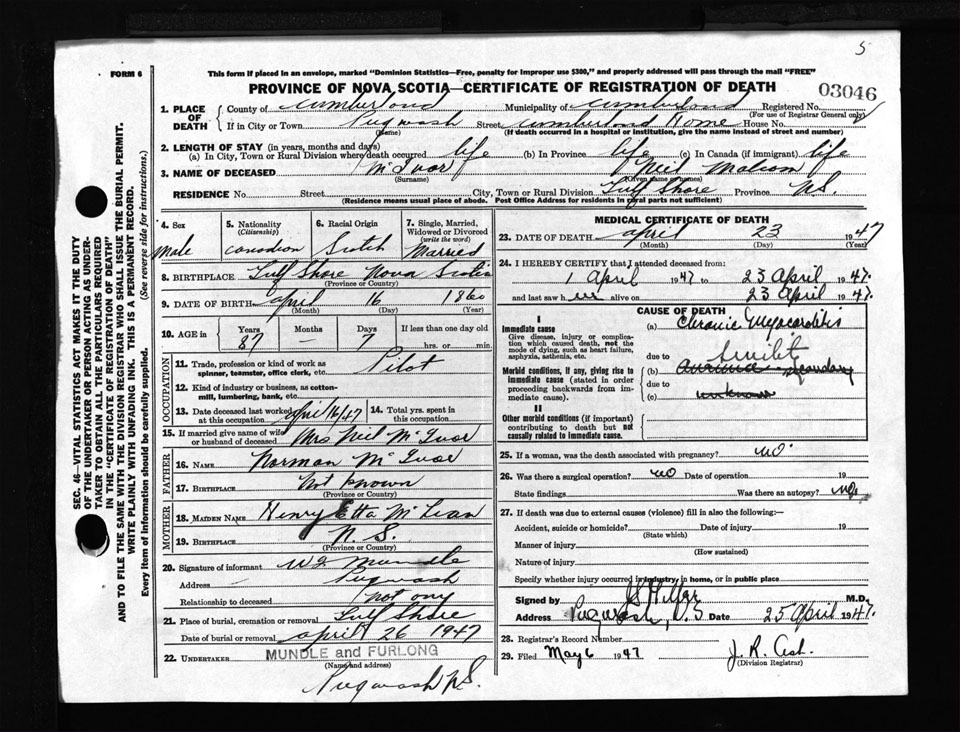 5
FORM 6
This form if placed in an envelope, marked "Dominion Statistics—Free, penalty for improper use $300," and properly addressed will pass through the mail "FREE"
PROVINCE OF NOVA SCOTIA—CERTIFICATE OF REGISTRATION OF DEATH
03046
1. PLACE OF DEATH
County of Cumberland Municipality of Cumberland Registered No.
(For use of Registrar General only)
If in City or Town Pugwash Street Cumberland Home House No.
(Name) (If death occurred in a hospital or institution, give the name instead of street and number)
2. LENGTH OF STAY (in years, months and days)
(a) In City, Town or Rural Division where death occurred life (b) In Province life (c) In Canada (if immigrant) life
3. NAME OF DECEASED McIvor Neil
(Surname) (Given name or names)
RESIDENCE No. Street City, Town or Rural Division Gulf Shore Province N.S.
(Residence means usual place of abode. Post Office Address for residents in rural parts not sufficient)
4. Sex
Male
5. Nationality
(Citizenship)
Canadian
6. Racial Origin
Scotch
7. Single, Married, Widowed or Divorced
(write the word)
Married
8. BIRTHPLACE Gulf Shore Nova Scotia
(Province or Country)
9. DATE OF BIRTH April 16 1860
(Month) (Day) (Year)
10. AGE in Years Months Days If less than one day old
87 — 7 hrs. or min.
OCCUPATION
11. Trade, profession or kind of work as spinner, teamster, office clerk, etc. Pilot
12. Kind of industry or business, as cotton-mill, lumbering, bank, etc.
13. Date deceased last worked at this occupation April 16/47
14. Total yrs. spent in this occupation
15. If married give name of wife or husband of deceased Mrs Neil McIvor
FATHER
16. NAME Norman McIvor
17. BIRTHPLACE Not known
(Province or Country)
MOTHER
18. MAIDEN NAME Henry Etta McLean
19. BIRTHPLACE N. S.
(Province or Country)
20. Signature of informant Mundle
Address Pugwash
Relationship to deceased not any
21. Place of burial, cremation or removal Gulf Shore
Date of burial or removal April 26 1947
22. UNDERTAKER MUNDLE and FURLONG
(Name and address)
Pugwash N.S.
MEDICAL CERTIFICATE OF DEATH
23. DATE OF DEATH April 23 1947
(Month) (Day) (Year)
24. I HEREBY CERTIFY that I attended deceased from:
1 April 1947 to 23 April 1947.
and last saw him alive on 23 April 1947.
CAUSE OF DEATH
I
Immediate cause
Give disease, injury or complication which caused death, not the mode of dying, such as heart failure, asphyxia, asthenia, etc.
(a) Chronic Myocarditis
due to
Morbid conditions, if any, giving rise to immediate cause (stated in order proceeding backwards from immediate cause).
(b) Senility secondary
due to
(c) unknown
II
Other morbid conditions (if important) contributing to death but not causally related to immediate cause.
25. If a woman, was the death associated with pregnancy? no
26. Was there a surgical operation? no Date of operation 19
State findings Was there an autopsy? no
27. If death was due to external causes (violence) fill in also the following:—
Accident, suicide or homicide? Date of injury 19
(State which)
Manner of injury
(How sustained)
Nature of injury
Specify whether injury occurred in industry, in home, or in public place
Signed by M.D.
Address Pugwash, N.S Date 25 April 1947.
28. Registrar's Record Number
29. Filed May 6 1947 J. R.
(Division Registrar)
SEC. 46—VITAL STATISTICS ACT MAKES IT THE DUTY
OF THE UNDERTAKER OR PERSON ACTING AS UNDER-
TAKER TO OBTAIN ALL THE PARTICULARS REQUIRED
IN THE "CERTIFICATE OF REGISTRATION OF DEATH"
AND TO FILE THE SAME WITH THE DIVISION REGISTRAR WHO SHALL ISSUE THE BURIAL PERMIT.
WRITE PLAINLY WITH UNFADING INK. THIS IS A PERMANENT RECORD.
Every item of Information should be carefully supplied. (See reverse side for instructions.)